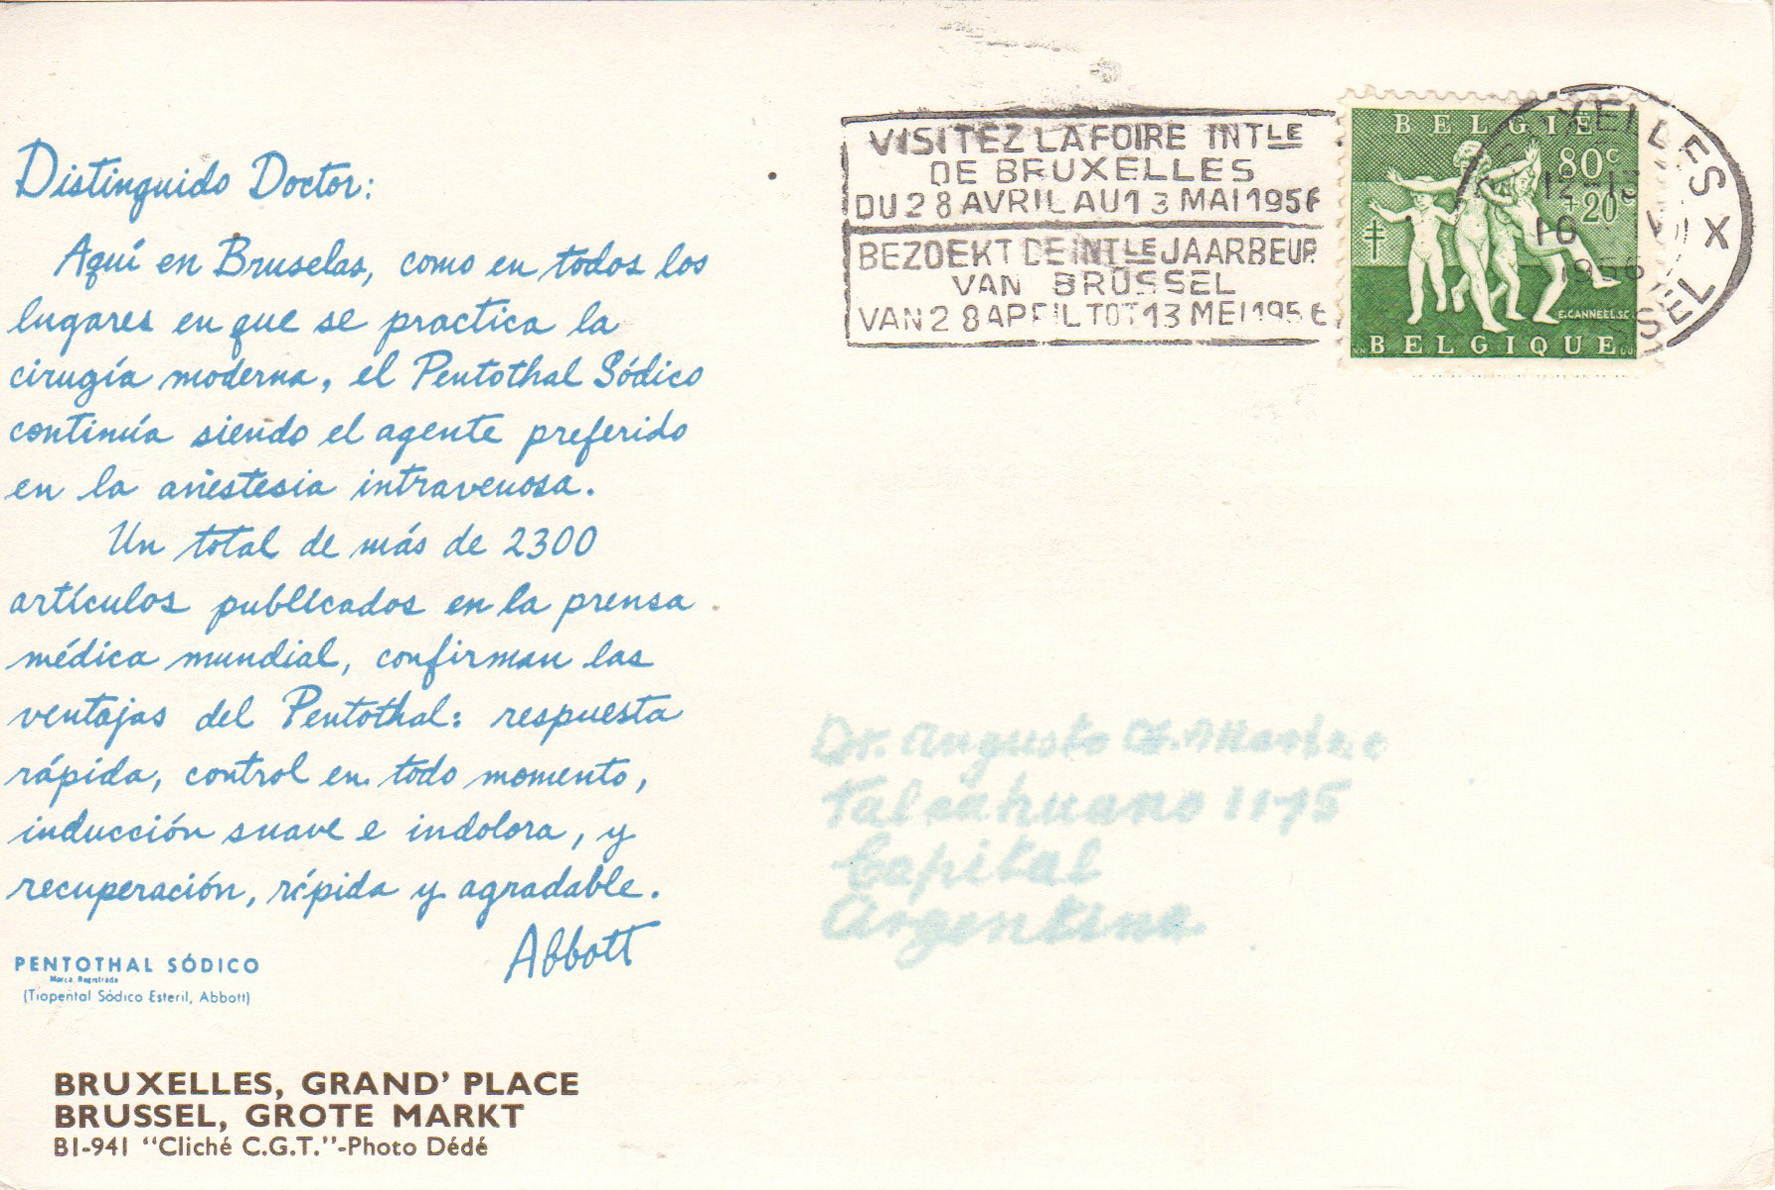 Distinguido Doctor:
Aquí en Bruselas, como en todos los
lugares en que se practica la
cirugía moderna, el Pentothal Sódico
continúa siendo el agente preferido
en la anestesia intravenosa.
Un total de más de 2300
artículos publicados en la prensa
médica mundial, confirman las
ventajas del Pentothal: respuesta
rápida, control en todo momento,
inducción suave e indolora, y
recuperación, rápida y agradable.
Abbott
PENTOTHAL SÓDICO
Marca Registrada
(Tiopental Sódico Esteril, Abbott)
BRUXELLES, GRAND' PLACE
BRUSSEL, GROTE MARKT
B1-941 "Cliché C.G.T."-Photo Dédé
VISITEZ LA FOIRE INTLE
DE BRUXELLES
DU 28 AVRIL AU 13 MAI 1956
BEZOEKT DE INTLE JAARBEUR
VAN BRUSSEL
VAN 28 APRIL TOT 13 MEI 1956
BELGIË
80c
+20
E.CANNEEL.SC
BELGIQUE
XELLES X
SSEL
12-13
10
1956
Dr. Augusto
Talcahuano 1175
Capital
Argentina